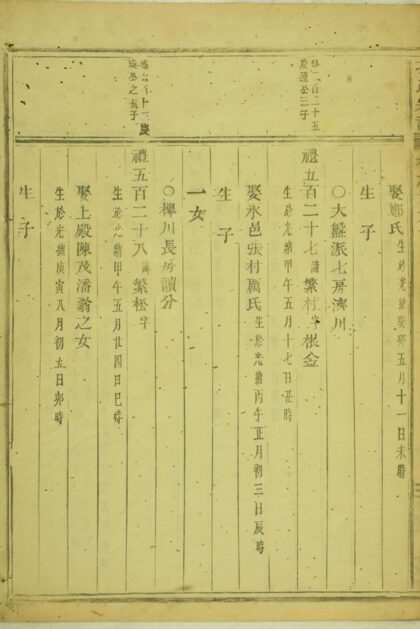 娶鄭氏生於光緒癸卯五月十一日未時
生子
〇大盤派七房濟川
禮五百二十七諱繁村字根金
生於光緒甲午五月十七日丑時
娶永邑張村厲氏生於光緒丙午正月初三日辰時
生子
一女
〇櫸川長房讀分
禮五百二十八諱繁松字
生於光緒甲午五月廿四日巳時
娶上殿陳茂潘翁之女
生於光緒庚寅八月初五日卯時
生子
百二十五
慶運公三子
煥公之長子